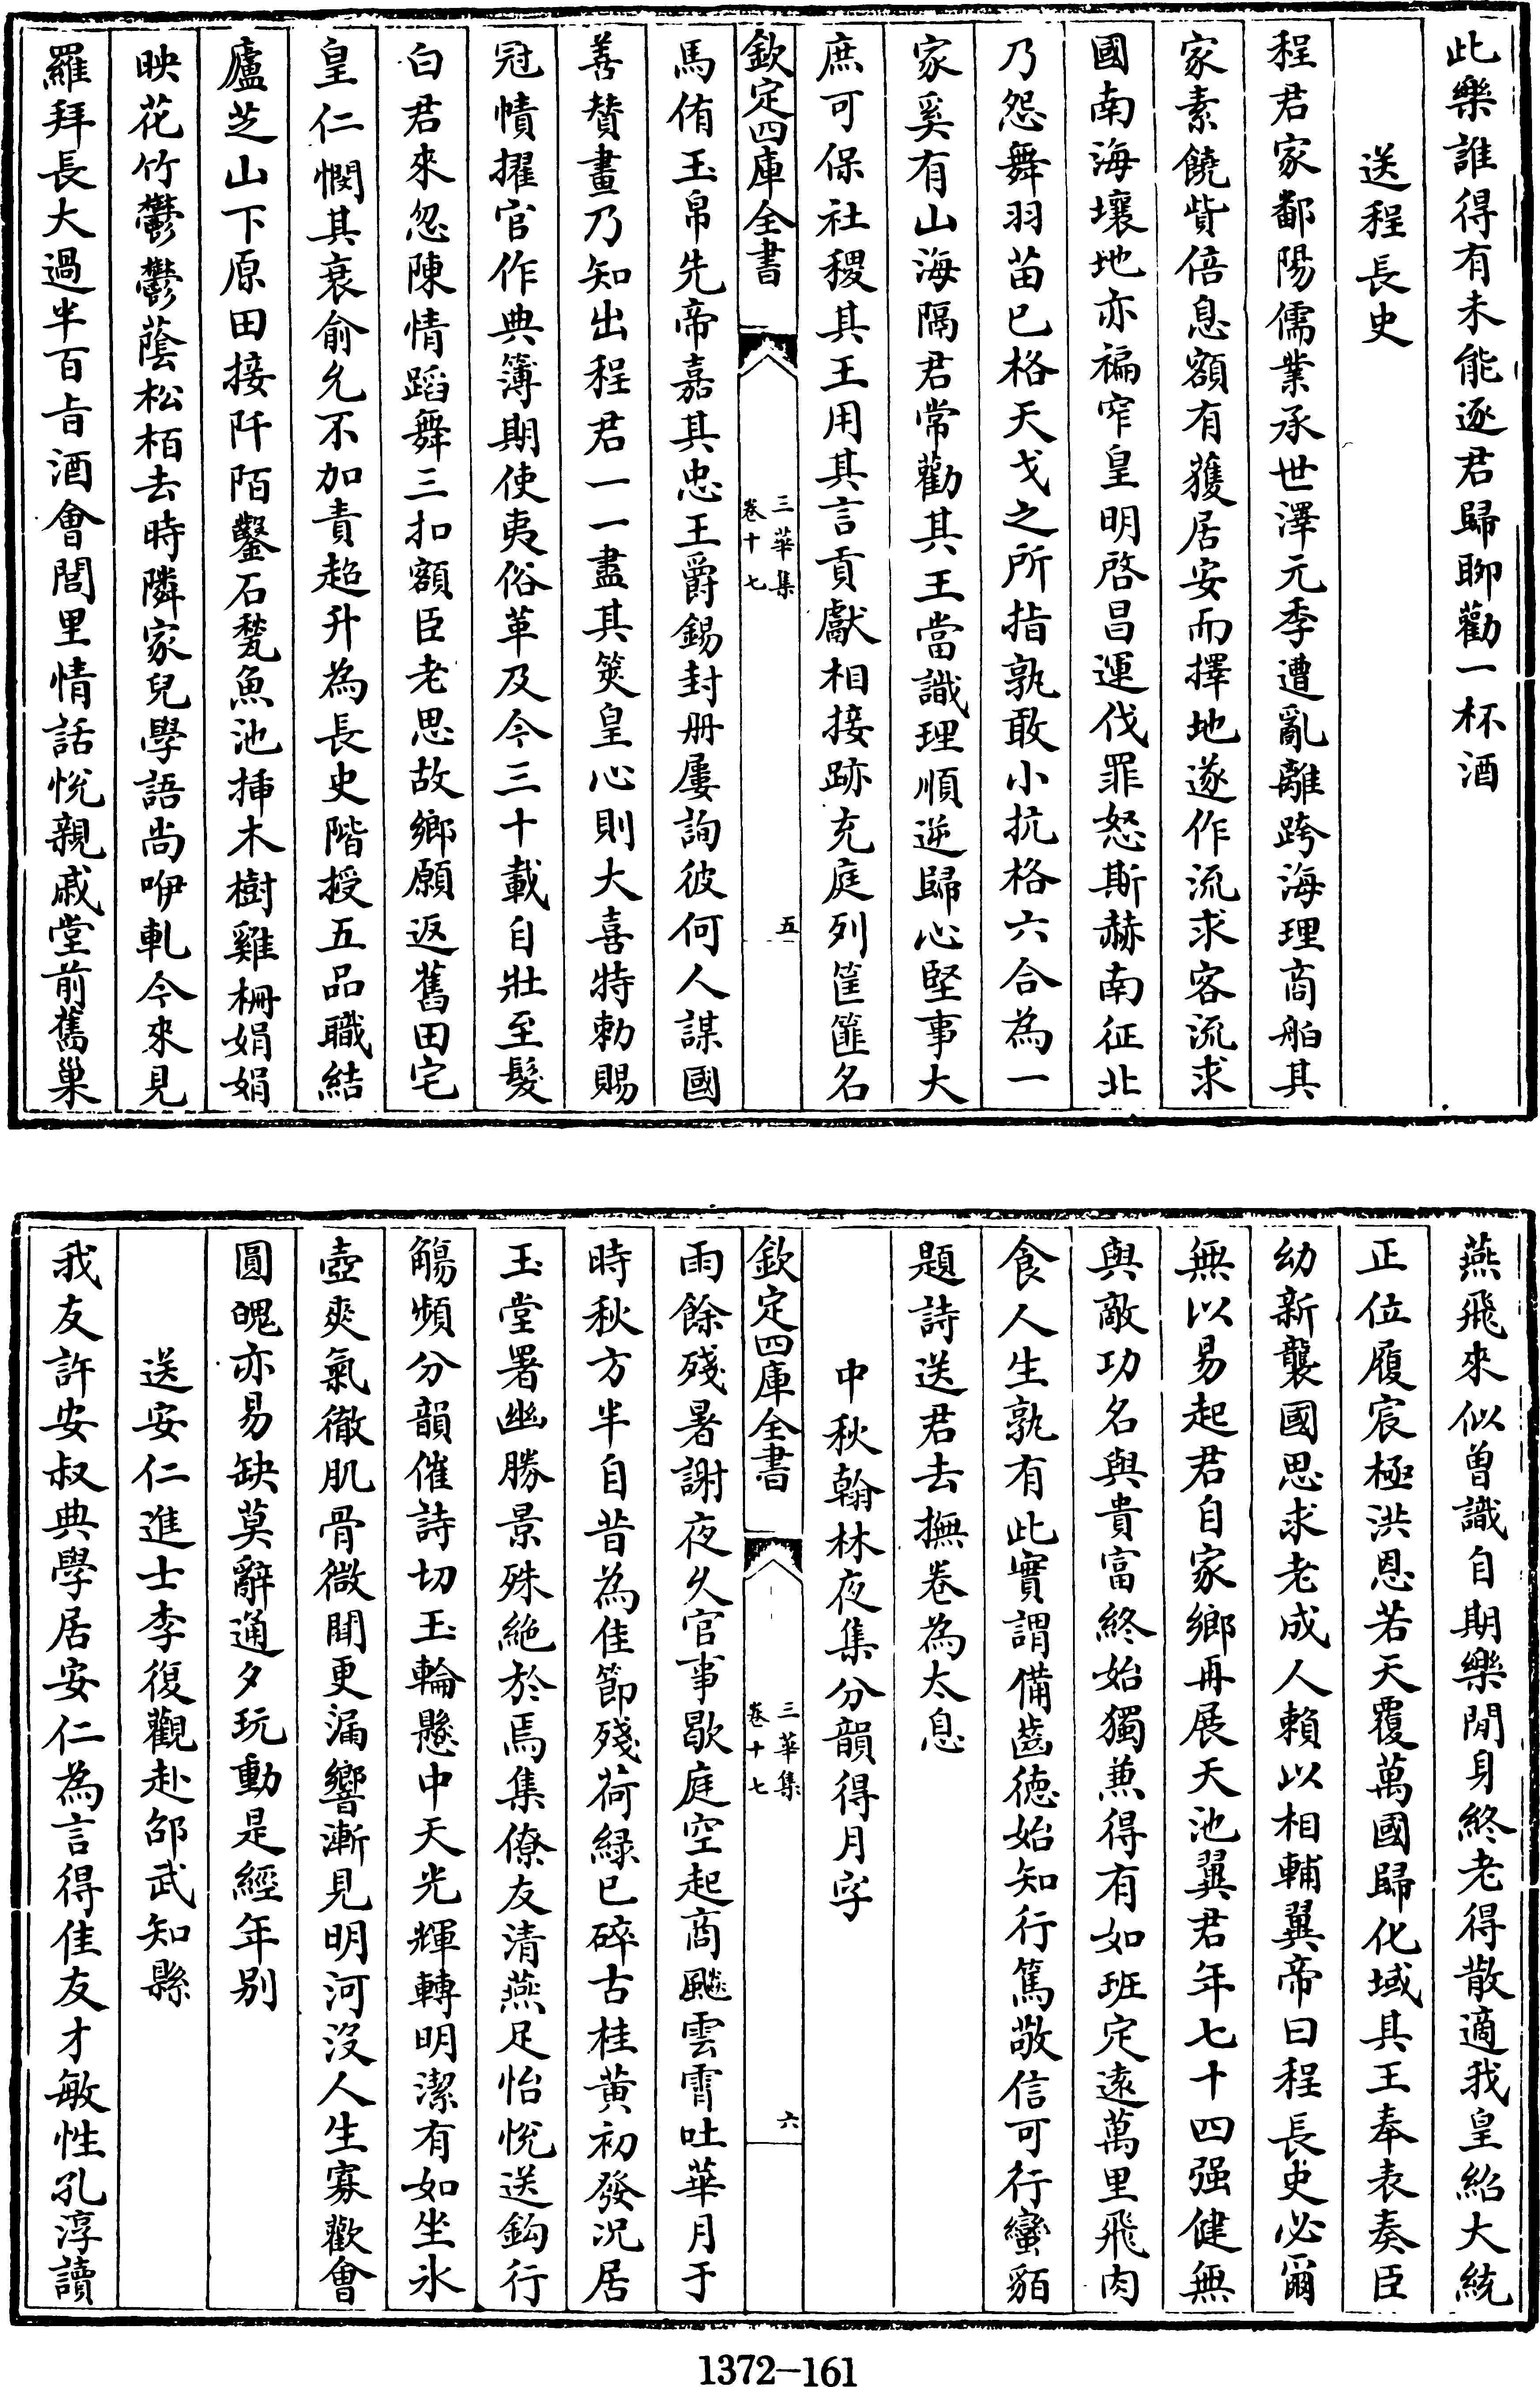 此樂誰得有未能逐君歸聊勸一杯酒
送程長史
程君家鄱陽儒業承世澤元季遭亂離跨海理商舶其
家素饒貲倍息額有獲居安而擇地遂作流求客流求
國南海壤地亦褊窄皇明啓昌運伐罪怒斯赫南征北
乃怨舞羽苗已格天戈之所指孰敢小抗格六合為一
家奚有山海隔君常勸其王當識理順逆歸心堅事大
庶可保社稷其王用其言貢獻相接跡充庭列筐篚名
欽定四庫全書
三華集
卷十七
五
馬侑玉帛先帝嘉其忠王爵錫封册屢詢彼何人謀國
善賛畫乃知出程君一一盡其筴皇心則大喜特勅賜
冠幘擢官作典簿期使夷俗革及今三十載自壯至髮
白君來忽陳情蹈舞三扣額臣老思故鄉願返舊田宅
皇仁憫其衰俞允不加責超升為長史階授五品職結
廬芝山下原田接阡陌鑿石甃魚池挿木樹雞柵娟娟
映花竹鬱鬱蔭松栢去時隣家兒學語尚咿軋今來見
羅拜長大過半百㫖酒會閭里情話悅親戚堂前舊巢
燕飛來似曾識自期樂閒身終老得散適我皇紹大統
正位履宸極洪恩若天覆萬國歸化域其王奉表奏臣
幼新襲國思求老成人賴以相輔翼帝曰程長史必爾
無以易起君自家鄉再展天池翼君年七十四强健無
與敵功名與貴富終始獨兼得有如班定遠萬里飛肉
食人生孰有此實謂備齒德始知行篤敬信可行蠻貊
題詩送君去撫卷為太息
中秋翰林夜集分韻得月字
欽定四庫全書
三華集
卷十七
六
雨餘殘暑謝夜久官事歇庭空起商飈雲霄吐華月于
時秋方半自昔為佳節殘荷緑已碎古桂黄初發况居
玉堂署幽勝景殊絶於焉集僚友清燕足怡悅送鈎行
觴頻分韻催詩切玉輪懸中天光輝轉明潔有如坐氷
壺爽氣徹肌骨微聞更漏響漸見明河沒人生寡歡會
圓魄亦易缺莫辭通夕玩動是經年别
送安仁進士李復觀赴邵武知縣
我友許安叔典學居安仁為言得佳友才敏性孔淳讀
1372-161